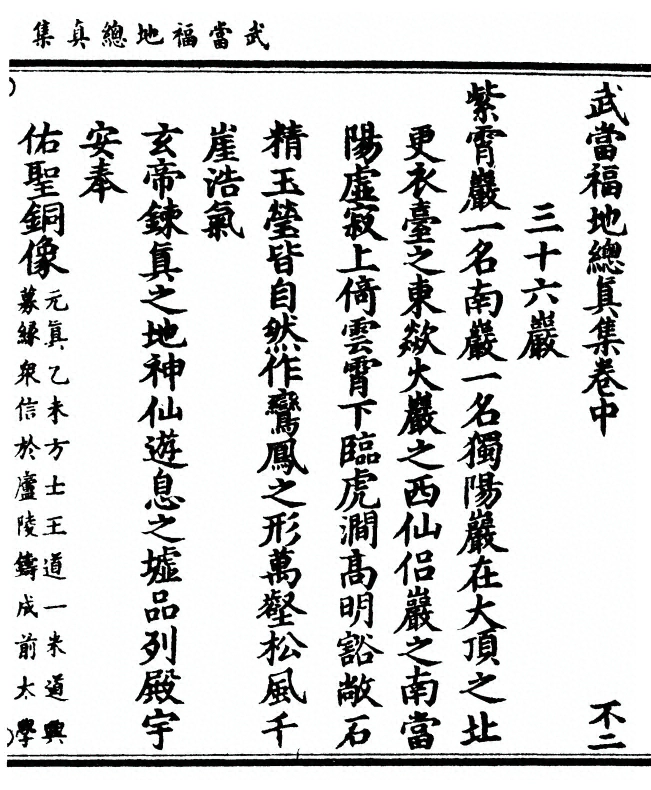 武當福地總真集
武當福地總眞集卷中 不二
三十六巖
紫霄巖一名南巖一名獨陽巖在大頂之北
更衣臺之東欻火巖之西仙侣巖之南當
陽虛寂上倚雲霄下臨虎澗髙明豁敞石
精玉瑩皆自然作鸞鳳之形萬壑松風千
崖浩氣
玄帝鍊眞之地神仙遊息之墟品列殿宇
安奉
佑聖銅像元眞乙未方士王道一米道興
募緣衆信於廬陵鑄成前太學